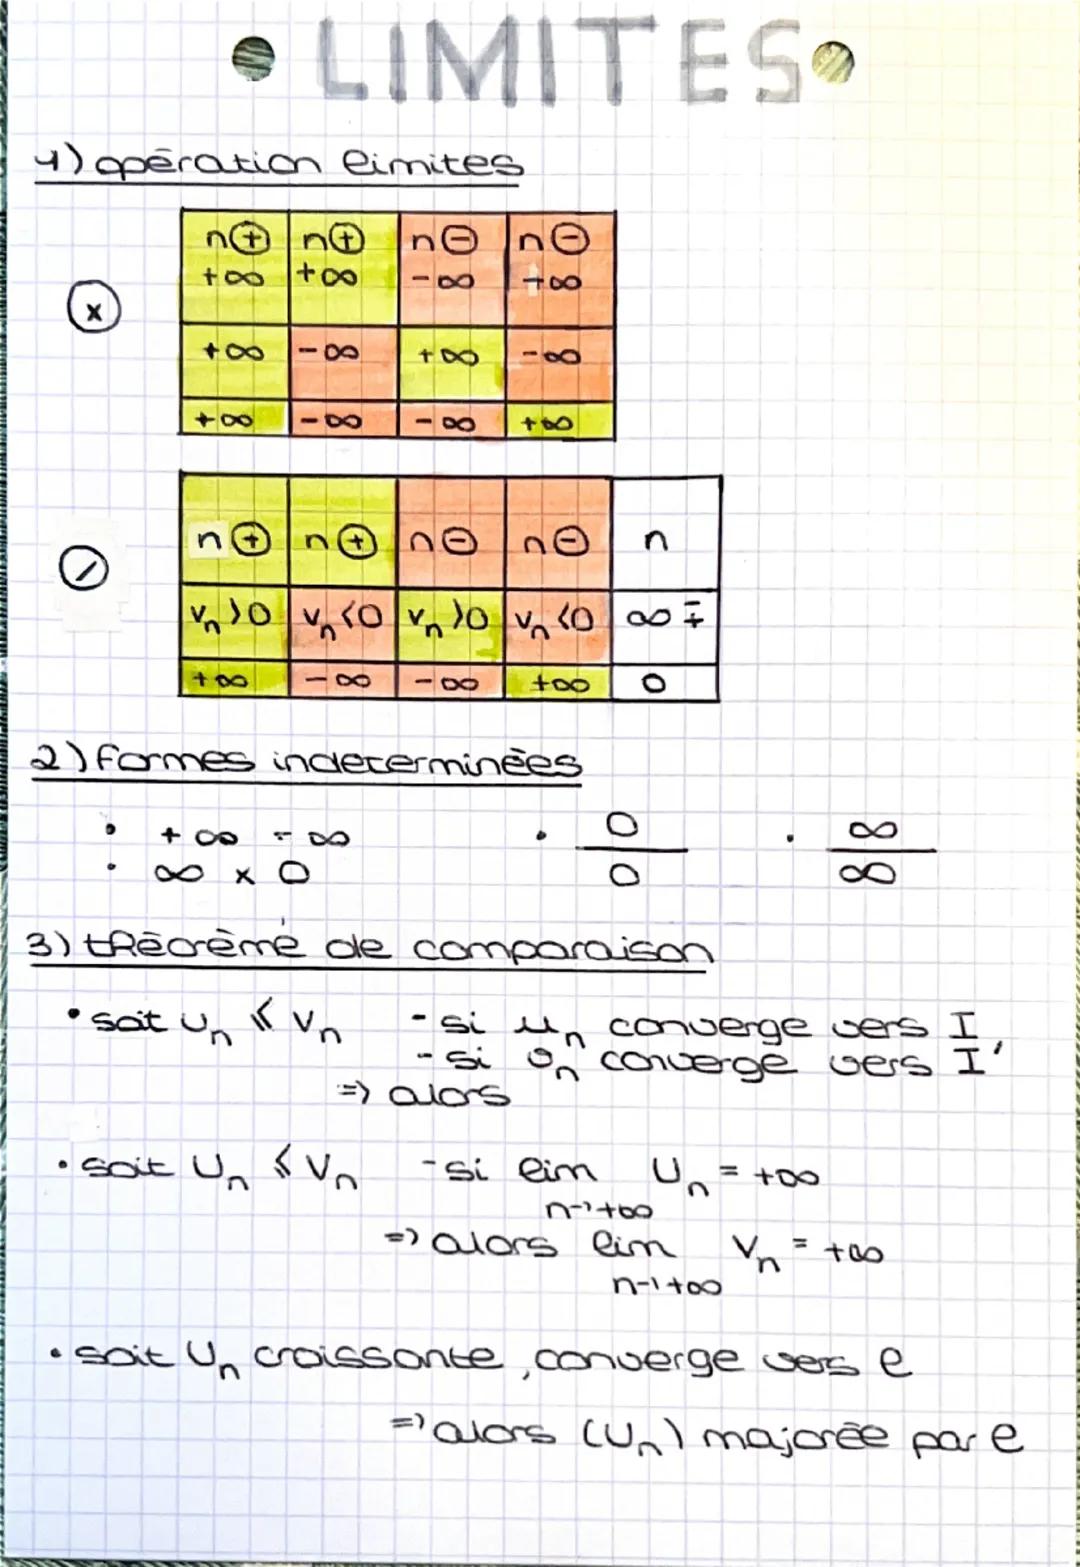 • LIMITES •
1) opération limites
n⊕ n⊕ n⊖ n⊖
+∞ +∞ -∞ +∞
x
+∞ -∞ +∞ -∞
+∞ -∞ -∞ +∞
n⊕ n⊕ n⊖ n⊖ n
/
vn>0 vn<0 vn>0 vn<0 ∞ ∓
+∞ -∞ -∞ +∞ 0
2) formes indeterminées
• +∞ - ∞ • 0/0 • ∞/∞
• ∞ x 0
3) théorème de comparaison
• soit Un ⩽ Vn - si un converge vers I
- si vn converge vers I'
=> alors
• soit Un ⩽ Vn - si lim Un = +∞
n→+∞
=> alors lim Vn = +∞
n→+∞
• soit Un croissante, converge vers l
=> alors (Un) majorée par l